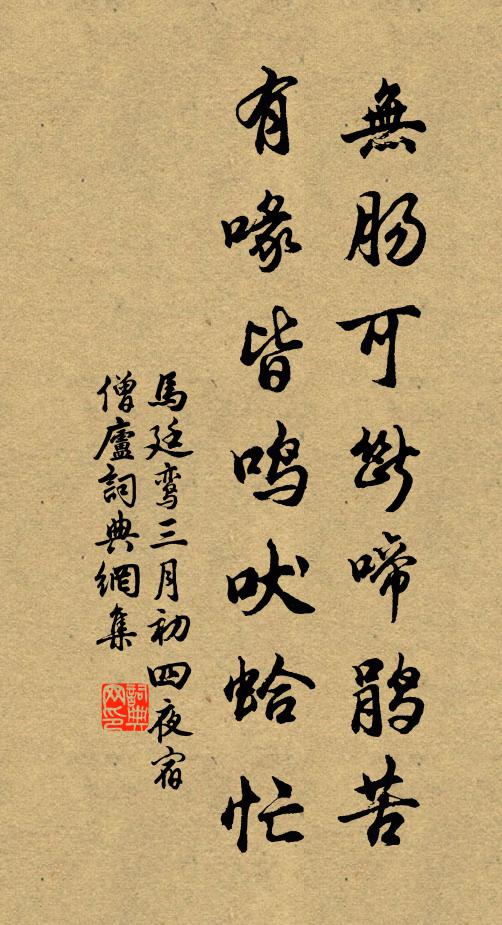 無腸可斷啼鵑苦
有喙皆鳴吠蛤忙
馬廷鸞三月初四夜宿
僧廬詞典網集
詞典
网印